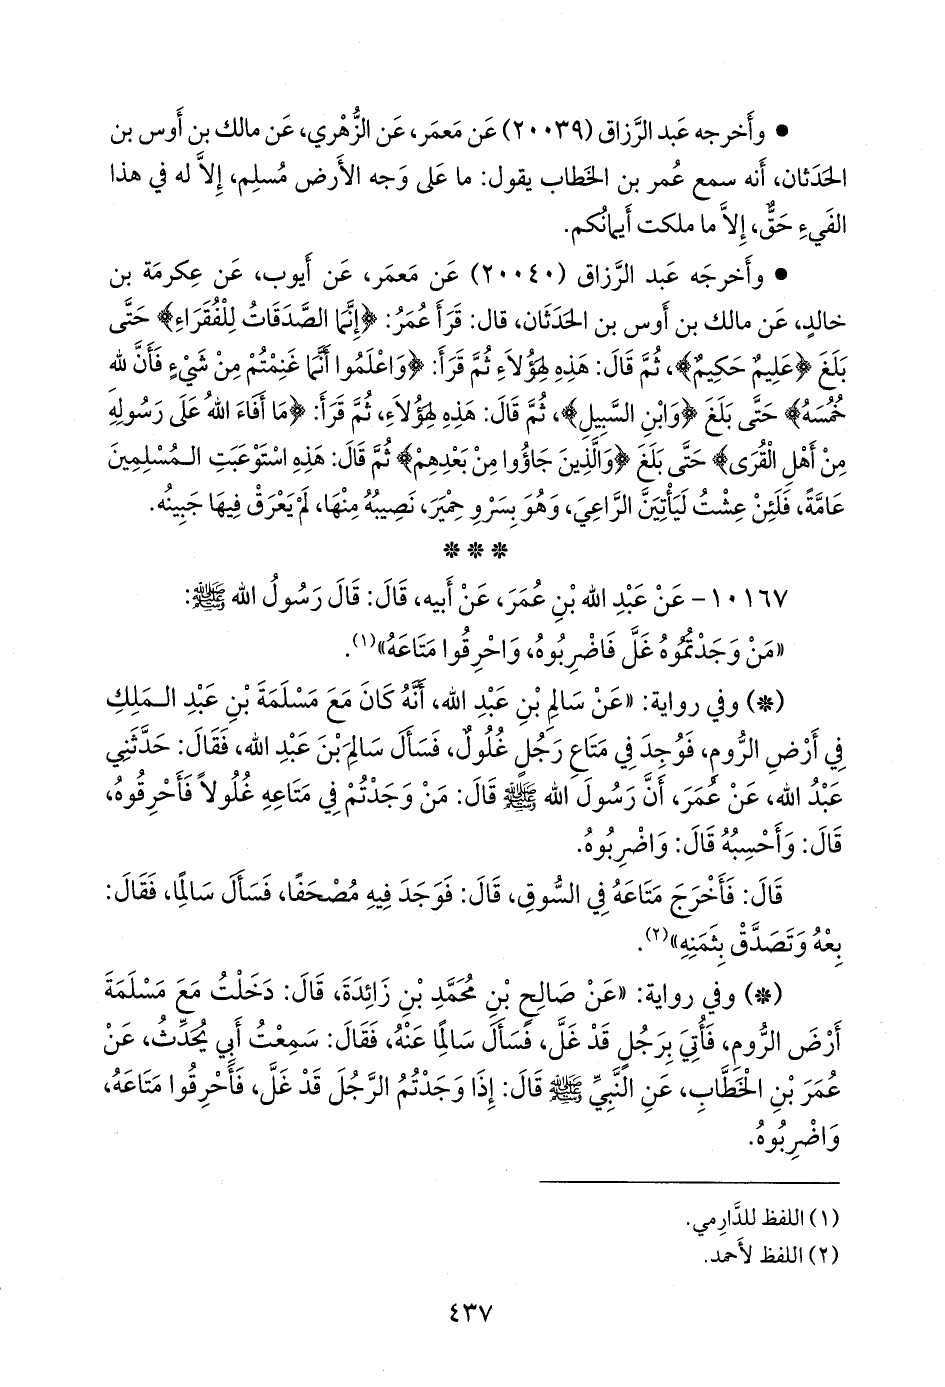 • وأَخرجه عَبد الرَّزاق (٢٠٠٣٩) عَن مَعمَر، عَن الزُّهْري، عَن مالك بن أَوس بن
الحَدَثان، أَنه سمع عُمر بن الخَطاب يقول: ما عَلى وَجه الأَرض مُسلِم، إِلاَّ له في هذا
الفَيءِ حَقٌّ، إِلاَّ ما ملكت أَيمانُكم.
• وأَخرجَه عَبد الرَّزاق (٢٠٠٤٠) عَن مَعمَر، عَن أَيوب، عَن عِكرمَة بن
خالدٍ، عَن مالك بن أَوس بن الحَدَثَان، قال: قَرَأَ عُمَرُ: ﴿إِنَّمَا الصَّدَقَاتُ لِلْفُقَرَاءِ﴾ حَتَّى
بَلَغَ ﴿عَلِيمٌ حَكِيمٌ﴾، ثُمَّ قَالَ: هَذِهِ لِهَؤُلَاءِ ثُمَّ قَرَأَ: ﴿وَاعْلَمُوا أَنَّمَا غَنِمْتُمْ مِنْ شَيْءٍ فَأَنَّ لله
خُمُسَهُ﴾ حَتَّى بَلَغَ ﴿وَابْنِ السَّبِيلِ﴾، ثُمَّ قَالَ: هَذِهِ لِهَؤُلَاءِ، ثُمَّ قَرَأَ: ﴿مَا أَفَاءَ اللهُ عَلَى رَسُولِهِ
مِنْ أَهْلِ الْقُرَى﴾ حَتَّى بَلَغَ ﴿وَالَّذِينَ جَاؤُوا مِنْ بَعْدِهِمْ﴾ ثُمَّ قَالَ: هَذِهِ اسْتَوْعَبَتِ الـمُسْلِمِينَ
عَامَّةً، فَلَئِنْ عِشْتُ لَيَأْتِيَنَّ الرَّاعِيَ، وَهُوَ بِسَرْوِ حِمْيَرَ، نَصِيبُهُ مِنْهَا، لَمْ يَعْرَقْ فِيهَا جَبِينُه.
* * *
١٠١٦٧- عَنْ عَبْدِ الله بْنِ عُمَرَ، عَنْ أَبيه، قَالَ: قَالَ رَسُولُ الله ﷺ:
«مَنْ وَجَدْتُمُوهُ غَلَّ فَاضْرِبُوهُ، وَاحْرِقُوا مَتَاعَهُ»(١).
(*) وفي رواية: «عَنْ سَالِمِ بْنِ عَبْدِ الله، أَنَّهُ كَانَ مَعَ مَسْلَمَةَ بْنِ عَبْدِ الـمَلِكِ
فِي أَرْضِ الرُّومِ، فَوُجِدَ فِي مَتَاعِ رَجُلٍ غُلُولٌ، فَسَأَلَ سَالِمَ بْنَ عَبْدِ الله، فَقَالَ: حَدَّثَنِي
عَبْدُ الله، عَنْ عُمَرَ، أَنَّ رَسُولَ الله ﷺ قَالَ: مَنْ وَجَدْتُمْ فِي مَتَاعِهِ غُلُولاً فَأَحْرِقُوهُ،
قَالَ: وَأَحْسِبُهُ قَالَ: وَاضْرِبُوهُ.
قَالَ: فَأَخْرَجَ مَتَاعَهُ فِي السُّوقِ، قَالَ: فَوَجَدَ فِيهِ مُصْحَفًا، فَسَأَلَ سَالِمًا، فَقَالَ:
بِعْهُ وَتَصَدَّقْ بِثَمَنِهِ»(٢).
(*) وفي رواية: «عَنْ صَالِحِ بْنِ مُحَمَّدِ بْنِ زَائِدَةَ، قَالَ: دَخَلْتُ مَعَ مَسْلَمَةَ
أَرْضَ الرُّومِ، فَأُتِيَ بِرَجُلٍ قَدْ غَلَّ، فَسَأَلَ سَالِمًا عَنْهُ، فَقَالَ: سَمِعْتُ أَبِي يُحَدِّثُ، عَنْ
عُمَرَ بْنِ الْخَطَّابِ، عَنِ النَّبِيِّ ﷺ قَالَ: إِذَا وَجَدْتُمُ الرَّجُلَ قَدْ غَلَّ، فَأَحْرِقُوا مَتَاعَهُ،
وَاضْرِبُوهُ.
(١) اللفظ للدَّارِمي.
(٢) اللفظ لأَحمد.
٤٣٧